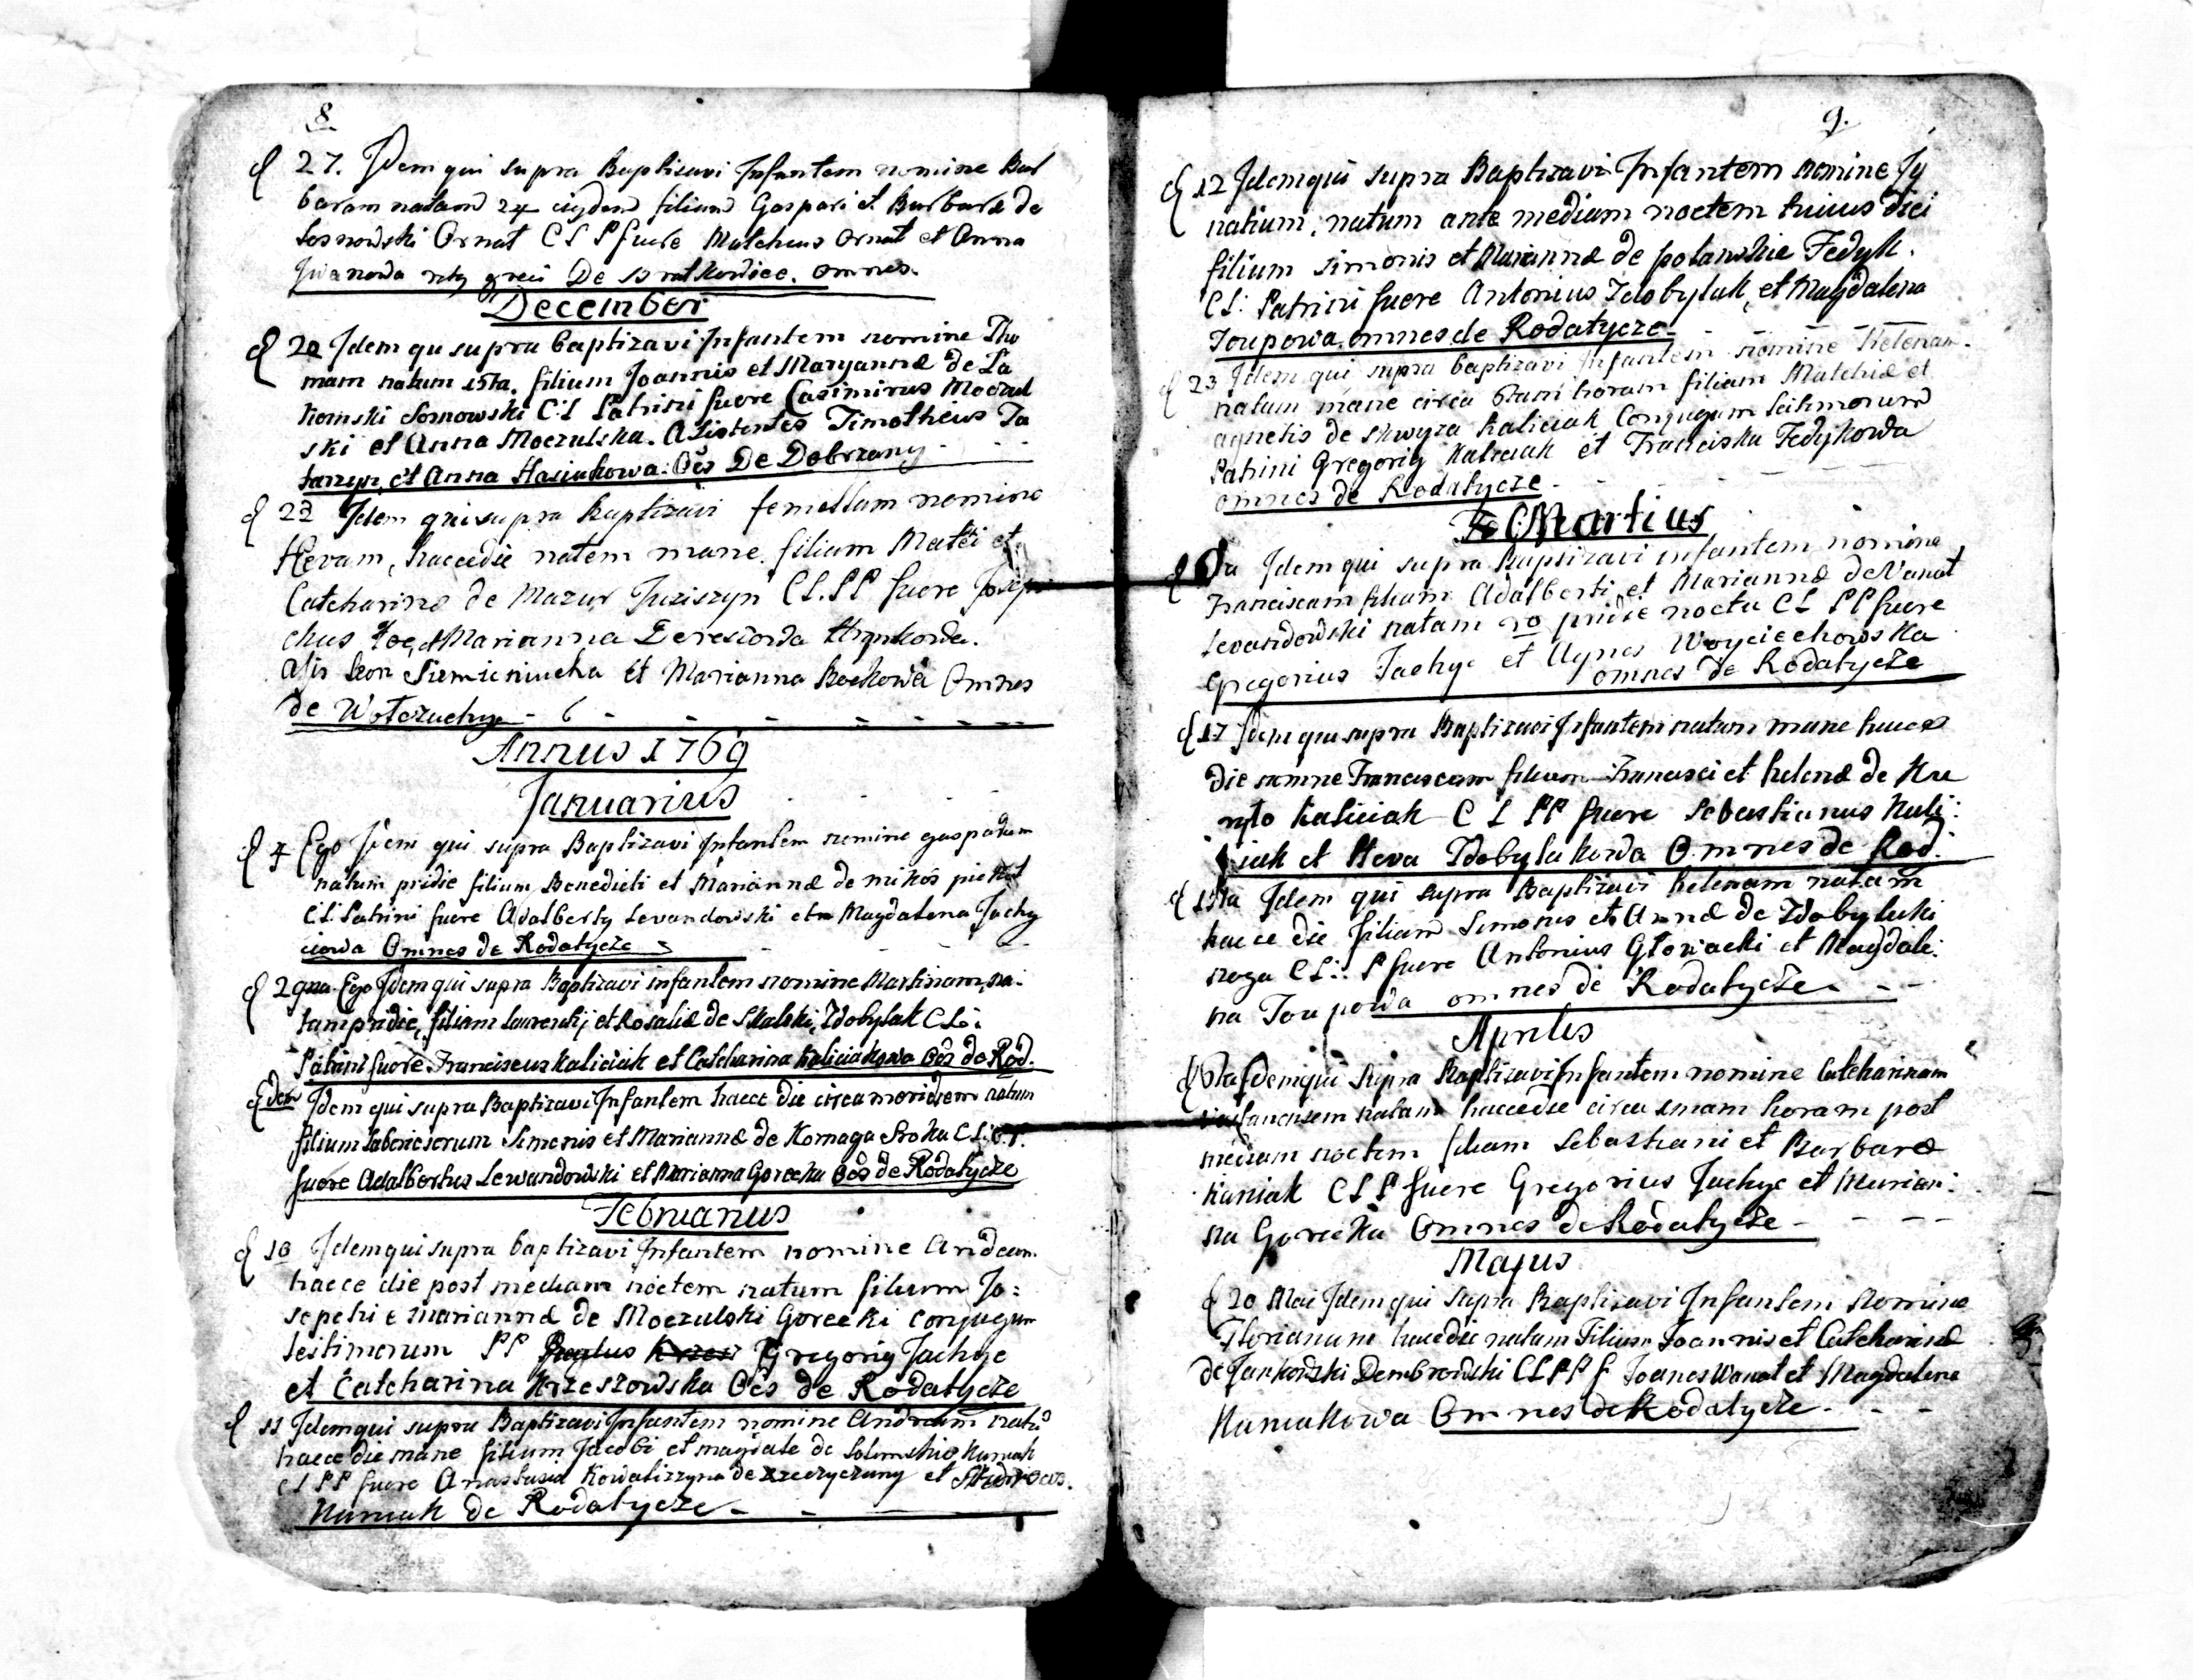 8.
d 27. Idem qui supra Baptisavi Infantem nomine Bar
baram natam 24 eiqdem filiam Gaspari et Barbara de
Sosnowski Ornat C L P fuere Matcheus Ornat et Anna
Iwanowa De Bratkowice. omnes.
December
d 20 Idem qu supra baptizavi Infantem nomine Tho
mam natum 15ta. filium Joannis et Maryannæ de La
komski Sosnowski C: L Patrini fuere Casimirus Moczul
ski et Anna Moczulska. Asistentes Timotheus Ta
et Anna Hasiukowa. Oēs De Dobrzany
d 23 Idem qui supra Baptizavi femellam nomine
Hevam, haccedie natem mane. filiam Matēi et
Catcharinæ de Mazur C L. P P fuere Josep
chus et Marianna
Leon et Marianna Omnes
de Wołczuchy
Annus 1769
Januarius
d 7 Ego Idem qui supra Baptizavi Infantem nomine gasparum
natum pridie filium Benedicti et Mariannæ de mikos
C: L: Patrini fuere Adalberty Levandowski et Magdalena Jachy
ciowa Omnes de Rodatycze
d 29na Ego Idem qui supra Baptizavi infantem nomine Martinam, na:
tam pridie, filiam Laurentij et Rosaliæ de Skalski, Zdobylak C L:
Patrini fuere Franciscus Kaliciak et Catcharina Kaliciakowa Oēs de Rod.
Edem Idem qui supra Baptizavi Infantem haece die circa meridiem natum
filium laboriosorum Simonis et Mariannæ de Kornaga Sroka C L: P P.
fuere Adalbertus Lewandowski et Marianna Gorecka Oēs de Rodatycze
Februarius
d 10 Idem qui supra baptizavi Infantem nomine Andeam.
haece die post mediam noctem natum filium Jo:
sepchi e Mariannæ de Moczulski Gorecki conjugum
lestimorum P P Gregoriy Jachyc
et Catcharina Krzeszowska Oēs de Rodatycze
d 11 Idem qui supra Baptizavi Infantem nomine Andream natū
haece die mane filium Jacobi et magdale de Kuniak
C L P P fuere Anastasia et
Kuniak de Rodatycze
9.
d 12 Idem qui supra Baptizavi Infantem nomine Jg
natium, natum ante mediam noctem huius diei
filium simonis et Mariannæ de polanskie Fedyk.
C L: Patrini fuere Antonius Zdobylak, et Magdalena
Toupowa. omnes de Rodatycze
d 23 Idem qui supra baptizavi Infantem nomine Helenam.
natum mane circa horam filiam Mathiæ et
agnetis de skwyra Kaliciak Conjugum
Patrini Gregoriy Kaliciak et Franciska Fedykowa
omnes de Rodatycze
Martius
Idem qui supra Baptizavi infantem nomine
Franciscam filiam Adalberti et Mariannæ de Vanat
Levandowski natam pridie noctu C L P P fuere
Gregorius Jachyc et Agnes Woyciechowska
omnes de Rodatycze
d 17 Idem qui supra Baptizavi Infantem natam mane haece
die nomine Franciscam filiam Francisci et helenæ de
Kaliciak C L P P fuere Sebastianus Kali:
ciak et Heva Zdobylakowa Omnes de Rod.
d Idem qui supra Baptizavi helenam natam
haece die filiam Simonis et Annæ de Zdobylaki
C L: P fuere Antonius Głowacki et Magdale:
na Toupowa omnes de Rodatycze
Aprilis
d Idem qui supra Baptizavi Infantem nomine Catcharinam
natam haecedie circa horam post
mediam noctem filiam Sebastiani et Barbaræ
Kuniak C L P fuere Gregorius Jachyc et Marian:
na Gorecka Omnes de Rodatycze
Majus
d 20 Mai Idem qui supra Baptizavi Infantem nomine
Florianum haecdie natum Filium Joannis et Catcharinæ
de Jankowski Dembrowski C L P P f Joanes Wanat et Magdalena
Kuniakowa Omnes de Rodatycze